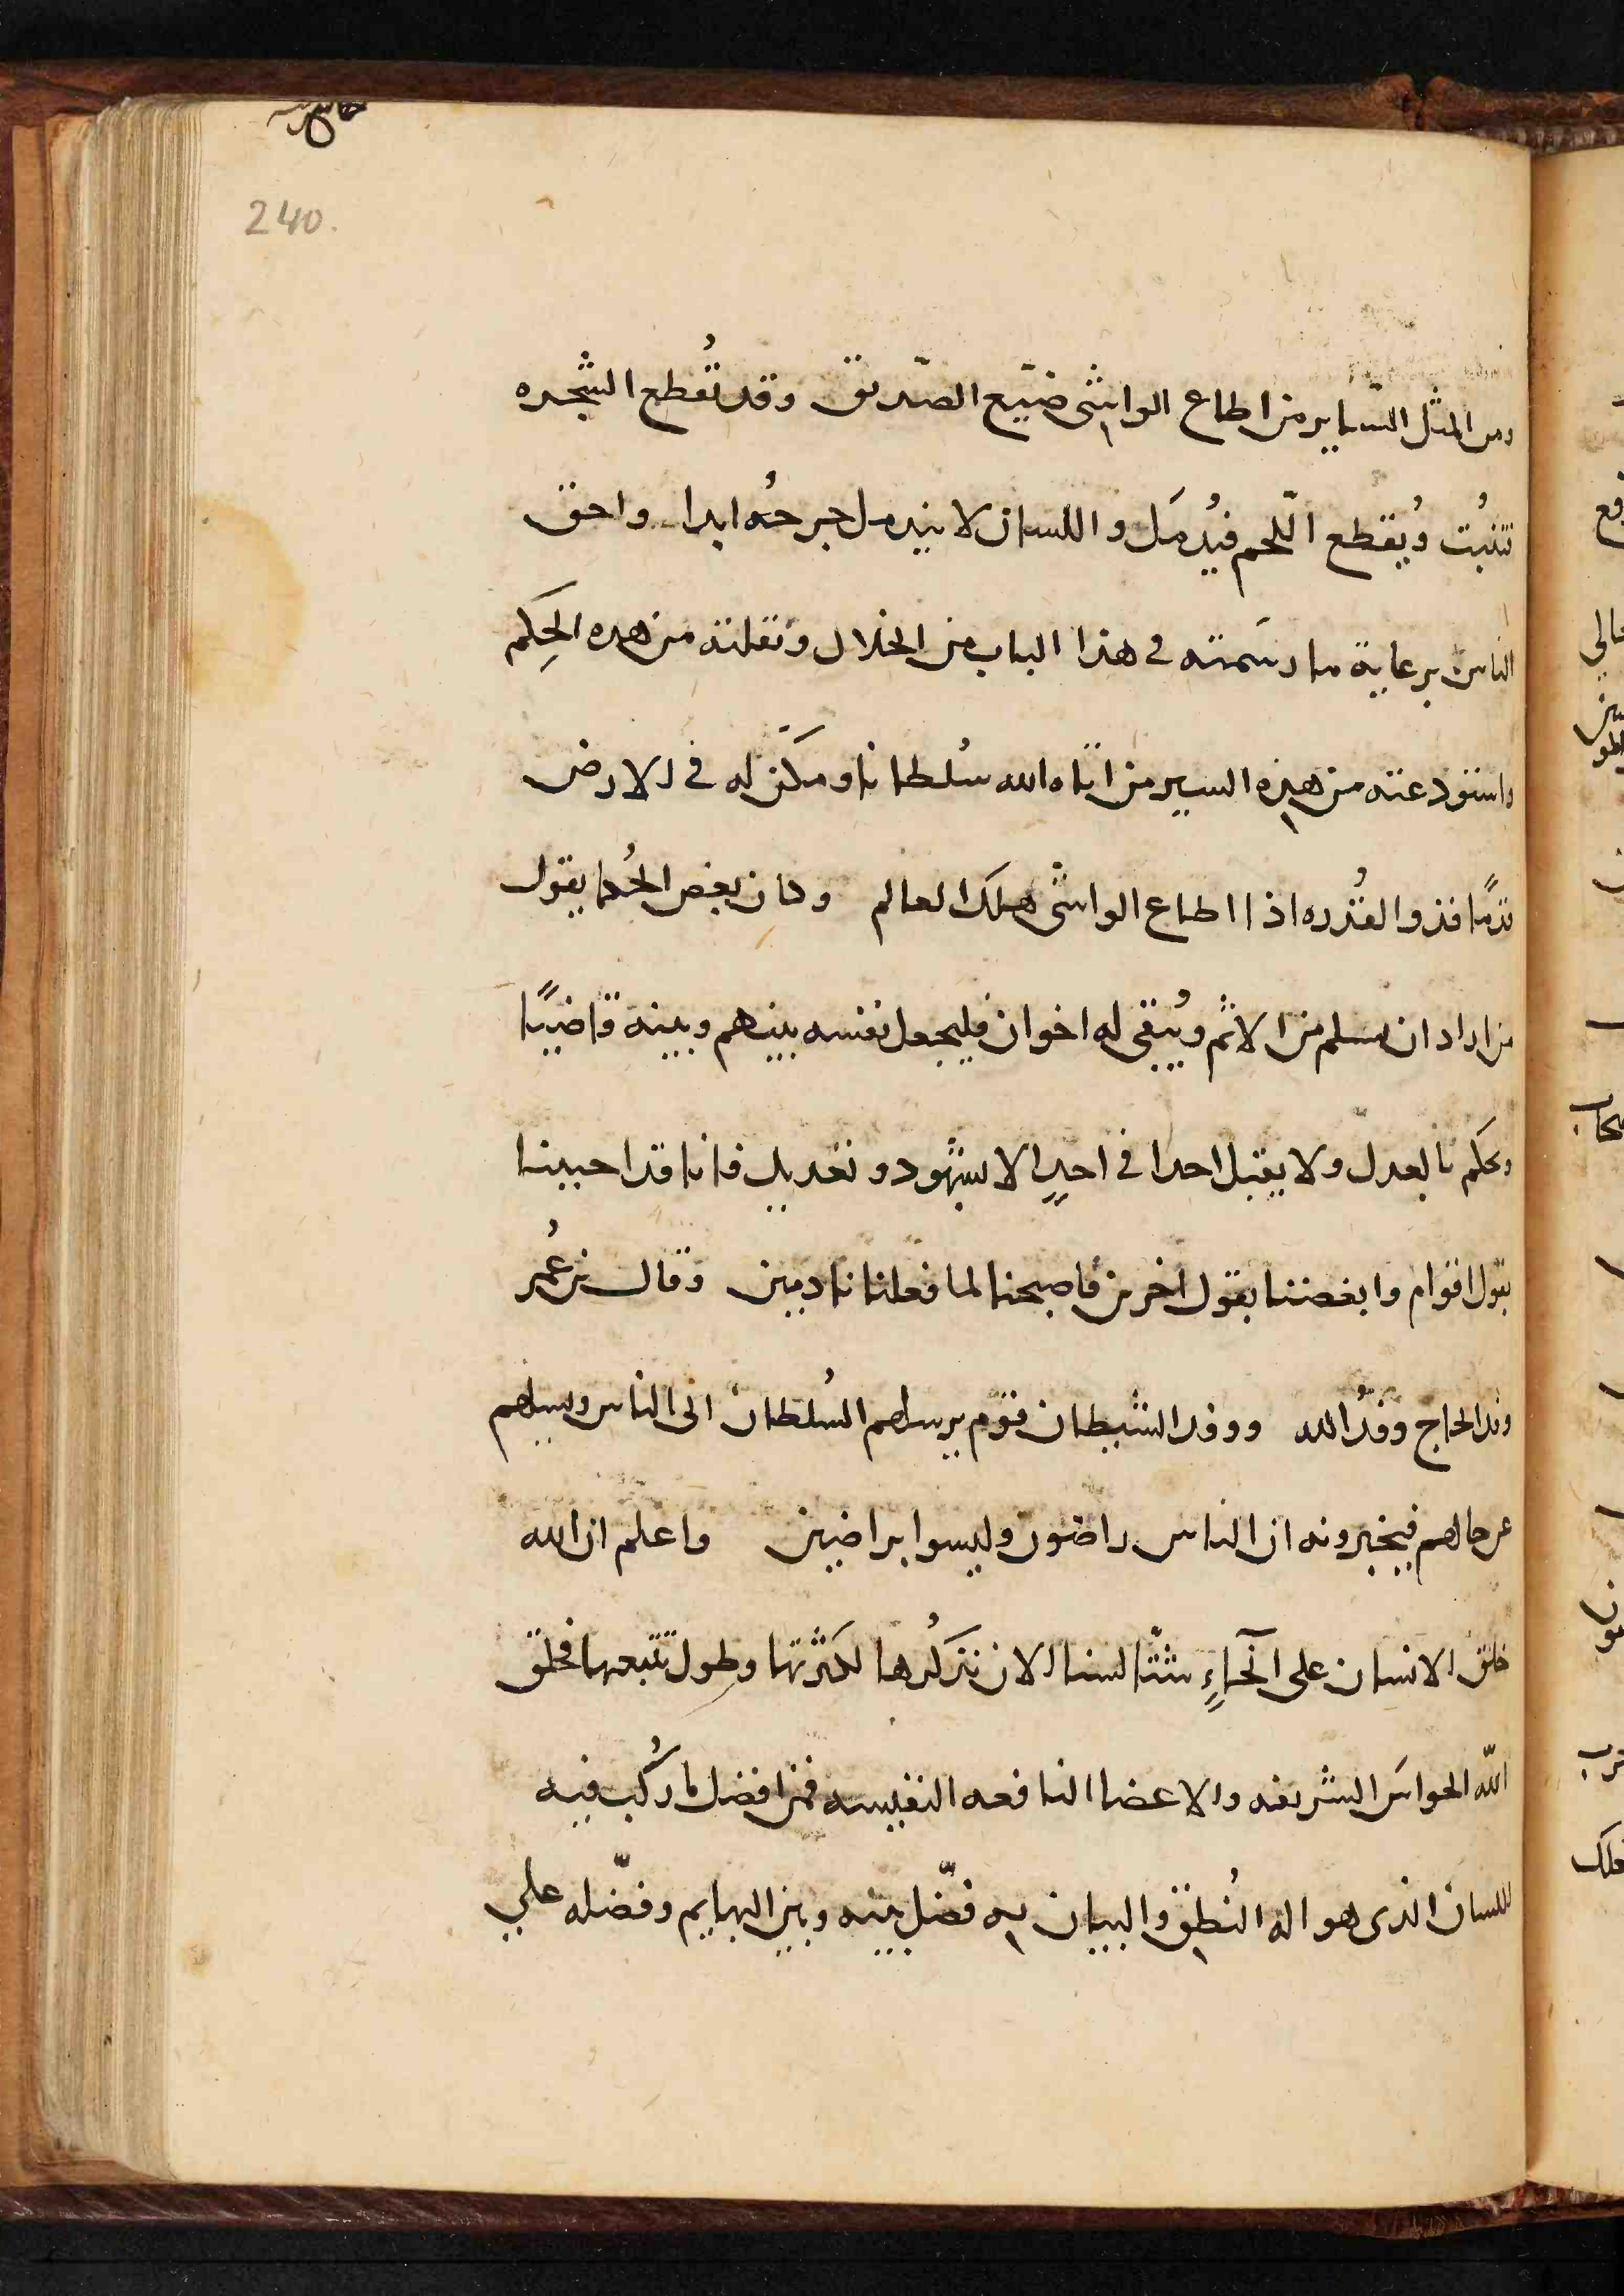 240.
ومن المثل السّاير من اطاع الواشى ضيّع الصّديق وقد تُقطع الشجره
تنبُت ويُقطع اللّحم فيُدمَل واللسان لا يندمل جرحُه ابدا واحق
الناس برعاية ما رسَمته فى هذا الباب من الخلال ونقلته من هده الحِكم
واستودعته من هذه السير من اتاه الله سُلطانا ومكّن له فى الارض
قدمًا فذو القُدره اذا اطاع الواشى هلك العالم وكان بعض الحُكما يقول
من اراد ان يسلم من الاثم ويُبقى له اخوان فليجعل نفسه بينهم وبينه قاضيًا
ويحكم بالعدل ولا يقبل احدا فى احدٍ الا بشهود وتعديل فانا قد احببنا
بقول اقوام وابغضنا بقول اخرين فاصبحنا لما فعلنا نادمين وقال بن عُمر
وفد الحاج وفدُ الله ووفد الشيطان قوم يرسلهم السُلطان الى الناس ويسلهم
عن حالهم فيخبرونه ان الناس راضون وليسوا براضين واعلم ان الله
خلق الانسان على آنحاءٍ شتّا لسنا الان نتذكُرها لكثرتها وطول تتبعها فخلق
الله الحواسَ الشريفه والاعضا النافعه النفيسه فمن افضل ما رُكب فيه
اللسان الذى هو اله النُطق والبيان به فصّل بينه وبين البهايم وفضّله على